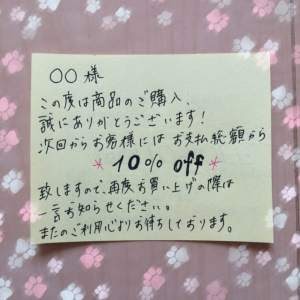 ○○様
この度は商品のご購入、
誠にありがとうございます！
次回からお客様には お支払総額から
*10% off*
致しますので、再度お買い上げの際は
一言お知らせください。
またのご利用心よりお待ちしております。